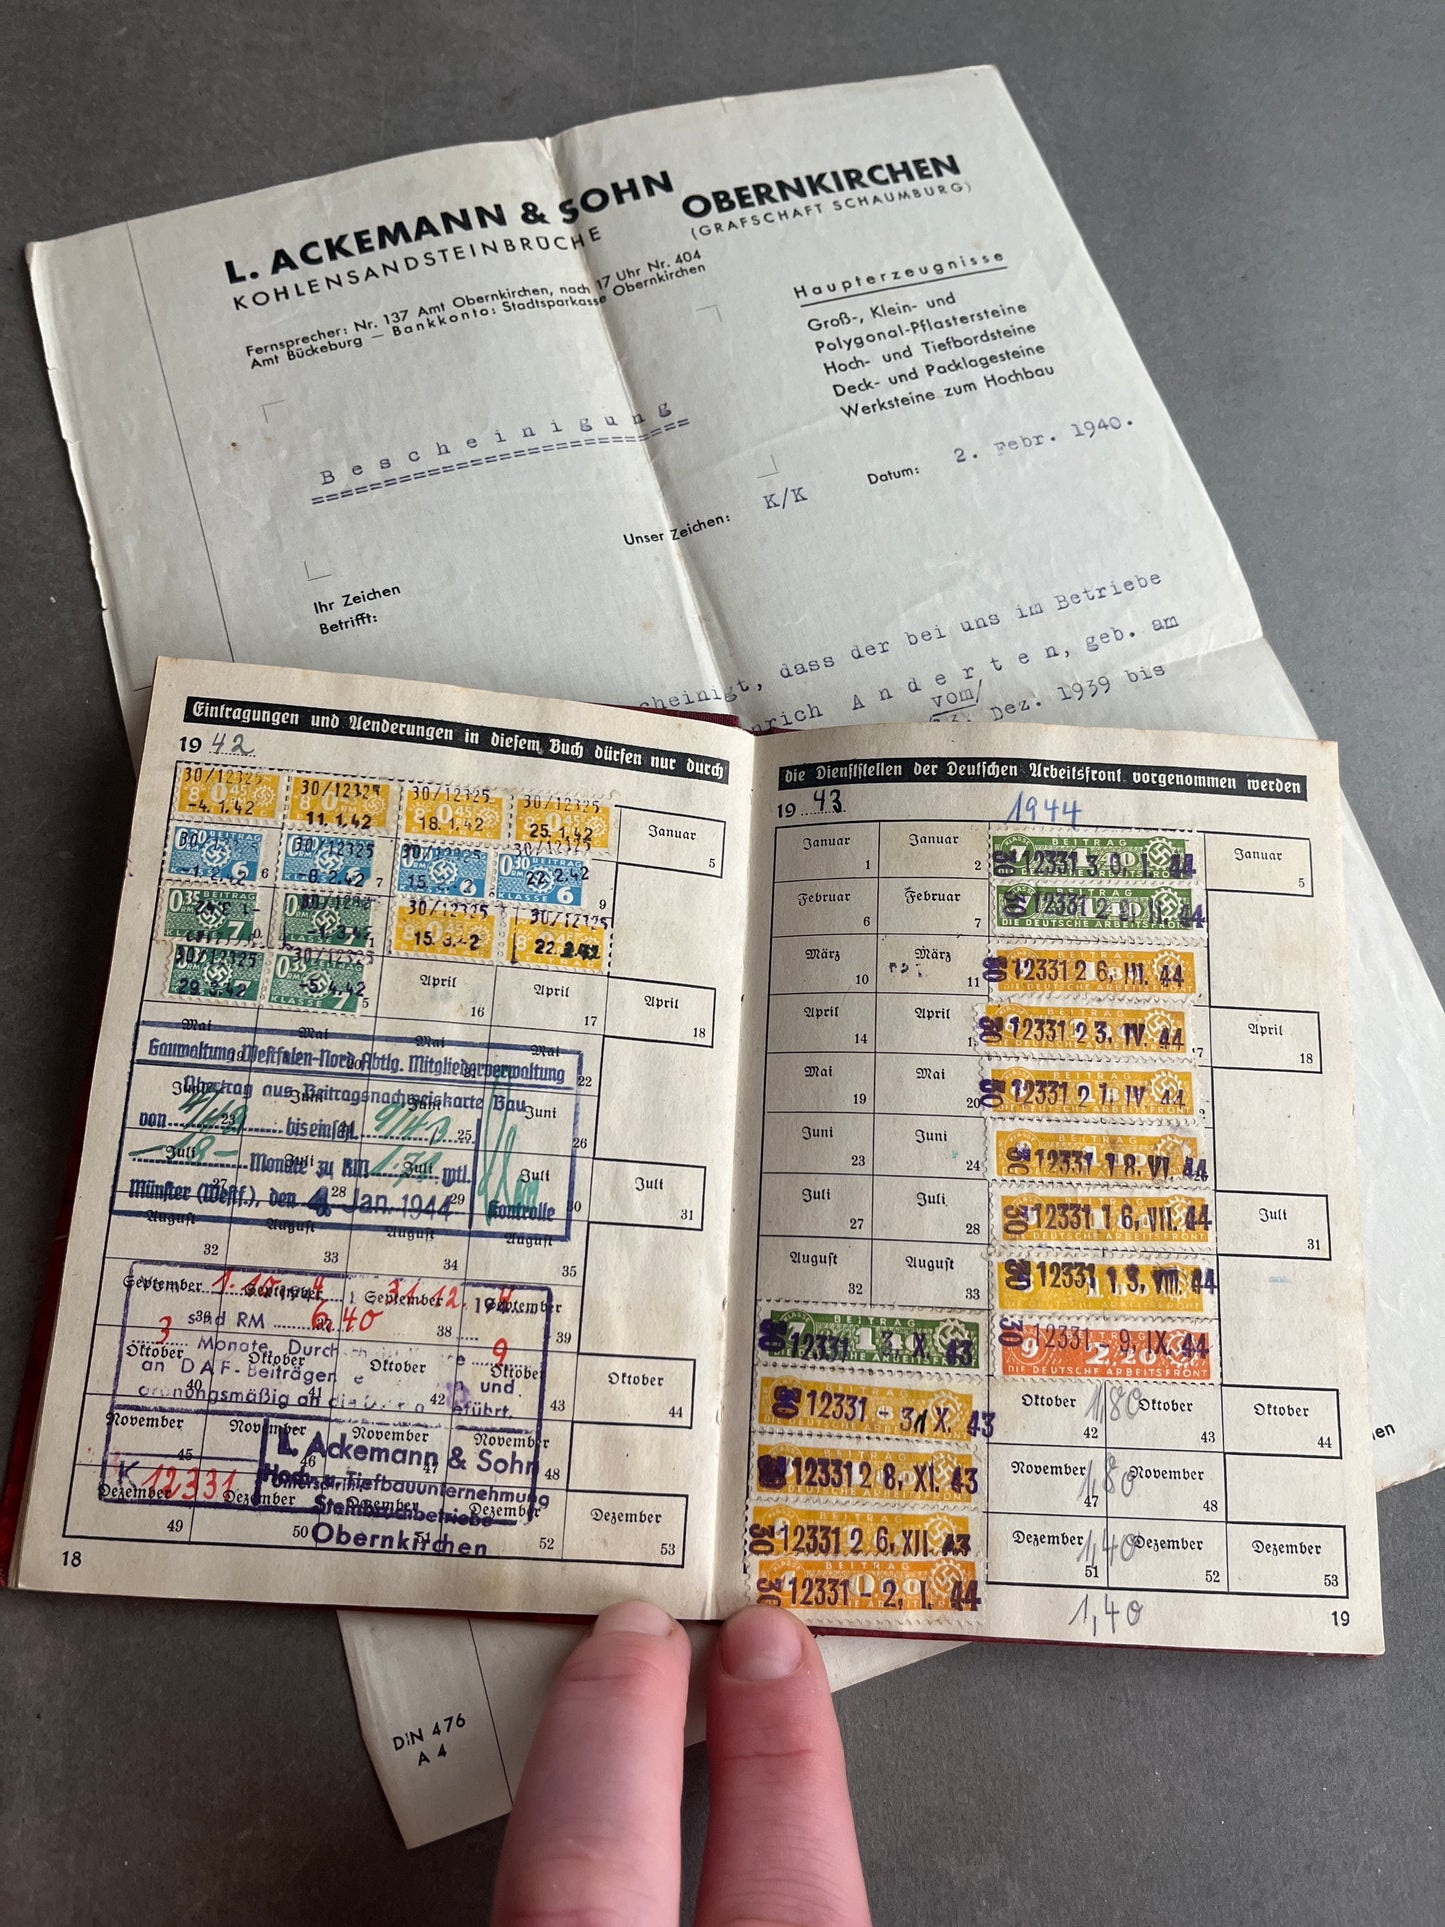 L. ACKEMANN & SOHN
KOHLENSANDSTEINBRÜCHE
OBERNKIRCHEN
(GRAFSCHAFT SCHAUMBURG)
Fernsprecher: Nr. 137 Amt Obernkirchen, nach 17 Uhr Nr. 404
Amt Bückeburg — Bankkonto: Stadtsparkasse Obernkirchen
Haupterzeugnisse
Groß-, Klein- und
Polygonal-Pflastersteine
Hoch- und Tiefbordsteine
Deck- und Packlagesteine
Werksteine zum Hochbau
Bescheinigung
Datum: 2. Febr. 1940.
Unser Zeichen: K/K
Ihr Zeichen
Betrifft:
cheinigt, dass der bei uns im Betriebe
nrich Anderten, geb. am
vom/
Dez. 1939 bis
en
DIN 476
A 4
Eintragungen und Aenderungen in diesem Buch dürfen nur durch
1942
30/12325 -4. 1. 42
30/12325 11. 1. 42
30/12325 18. 1. 42
30/12325 25. 1. 42
Januar 5
30/12325 -1. 2. 42 6
30/12325 -8. 2. 42 7
30/12325 15. 2. 42
30/12325 22. 2. 42 9
30/12325 15. 3. 42
30/12325 22. 3. 42
30/12325 29. 3. 42
30/12325 -5. 4. 42
April 16
April 17
April 18
Mai Mai Mai Mai 22
Gauwaltung Westfalen-Nord Abtlg. Mitgliederverwaltung
Übertrag aus Beitragsnachweiskarte Bau
von bis einschl.
-18- Monate zu RM mtl.
Münster (Westf.), den 4. Jan. 1944
Kontrolle
Juni 23 Juni 24 Juni 25 Juni 26
Juli 27 Juli 28 Juli 29 Juli 30 Juli 31
August 32 August 33 August 34 August 35
September 36 September 37 September 38 September 39
1.10. 31.12. 194
sind RM 6,40
3 Monate. Durch
an DAF-Beiträgen und
ordnungsmäßig an die geführt.
Oktober 40 Oktober 41 Oktober 42 Oktober 43 Oktober 44
November 45 November 46 November 47 November 48
L. Ackemann & Sohn
Hoch- u. Tiefbauunternehmung
Steinbruchbetriebe
Obernkirchen
K 12331
Dezember 49 Dezember 50 Dezember 51 Dezember 52 Dezember 53
18
die Dienststellen der Deutschen Arbeitsfront vorgenommen werden
1943
1944
Januar 1 Januar 2
30 12331 3 0. I. 44
Januar 5
Februar 6 Februar 7
März 10 März 11
30 12331 2 6. III. 44
April 14 April
30 12331 2 3. IV. 44
April 18
Mai 19 Mai 20
30 12331 2 1. IV 44
Juni 23 Juni 24
30 12331 1 8. VI. 44
Juli 27 Juli 28
30 12331 1 6. VII. 44
Juli 31
August 32 August 33
30 12331 1 3. VIII. 44
30 12331 3. X. 43
30 12331 9. IX. 44
9 2.20
DIE DEUTSCHE ARBEITSFRONT
30 12331 - 31 X. 43
Oktober 42 1,80 Oktober 43 Oktober 44
12331 2 8. XI. 43
November 47 1,80 November 48
30 12331 2 6. XII. 43
Dezember 51 1,40 Dezember 52 Dezember 53
30 12331 - 2. I. 44
1,40
19